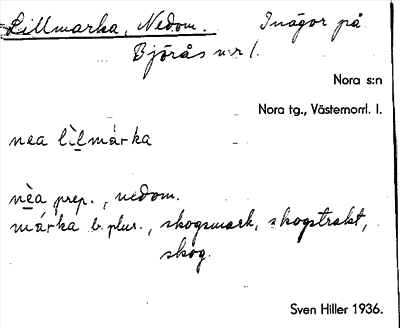 Lillmarka, Nedom. Inägor på
Björås n:r 1.
Nora s:n
Nora tg., Västernorrl. l.
nea lìlmárka
nèa prep., nedom.
márka b. plur., skogsmark, skogstrakt,
skog.
Sven Hiller 1936.